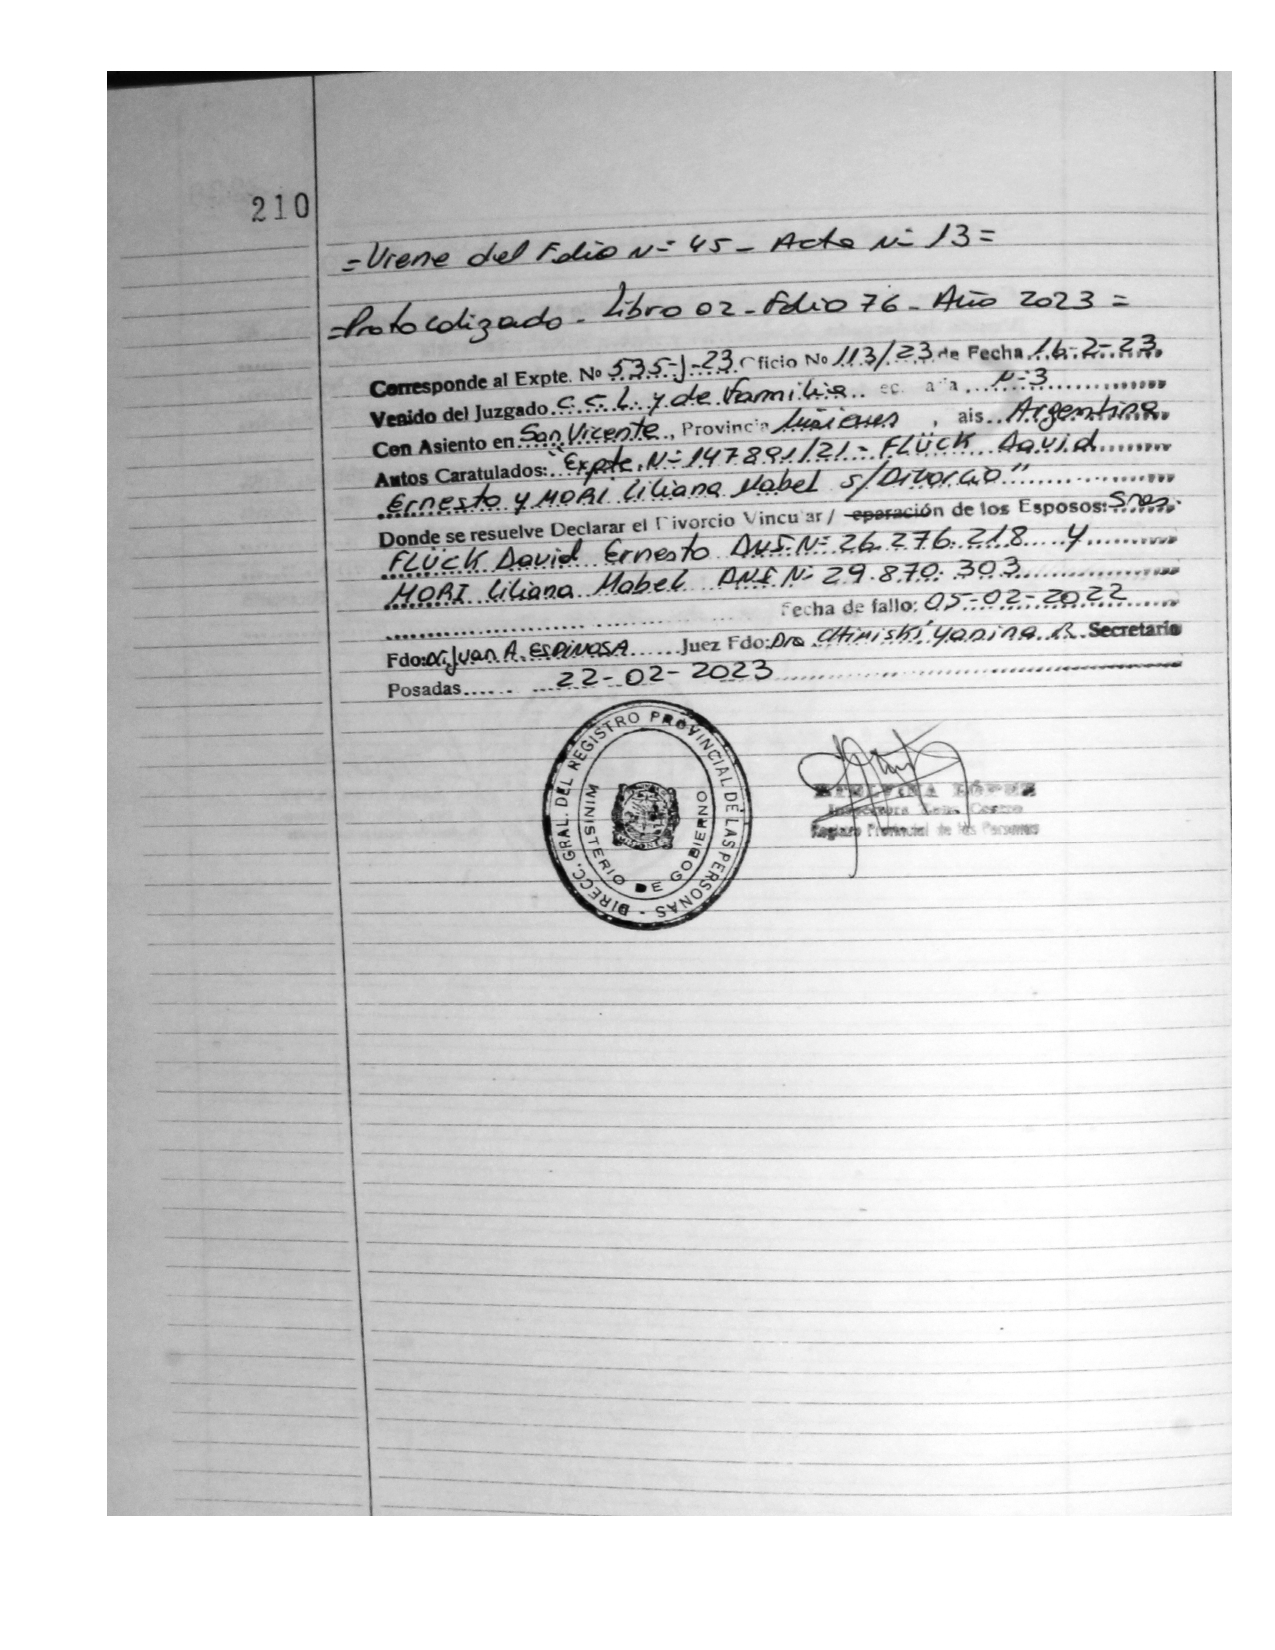 210
=Viene del Folio N= 45 - Acta N= 13=
=Protocolizado - Libro 02 - Folio 76 - Año 2023 =
Corresponde al Expte. No 535-J-23 Oficio No 113/23 de Fecha 16-2-23
Venido del Juzgado C.C.L. y de Familia N=3
Con Asiento en San Vicente, Provincia Misiones, ais Argentina
Autos Caratulados: "Expte. N= 147891/21 - FLÜCK David
Ernesto y MORI Liliana Mabel s/Divorcio"
Donde se resuelve Declarar el Divorcio Vincular / eparación de los Esposos: Sres.
FLÜCK David Ernesto DNI N= 26.276.218 y
MORI Liliana Mabel DNI N= 29.870.303
Fecha de fallo: 05-02-2022
Fdo: Dr. Juan A. ESPINOSA Juez Fdo: Dra Yanina R. Secretario
Posadas 22-02-2023
DIRECC. GRAL. DEL REGISTRO PROVINCIAL DE LAS PERSONAS -
MINISTERIO DE GOBIERNO
LÓPEZ
Inspectora
Registro Provincial de las Personas